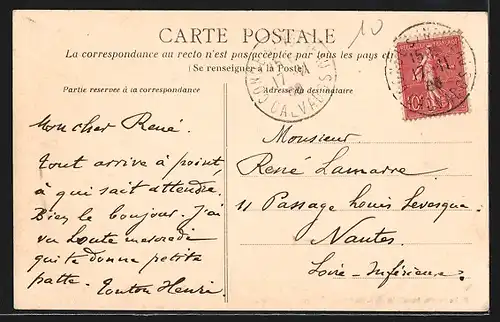 10
CARTE POSTALE
La correspondance au recto n'est pas acceptée par tous les pays
(Se renseigner à la Poste)
Partie reservée à la correspondance
Adresse du destinataire
CALVADOS
10c
Mon cher René.
Tout arrive à point,
à qui sait attendre.
Bien le bonjour. J'ai
vu Loute mercredi
qui te donne petite
patte.
Tonton Henri.
Monsieur
René Lamarre
11 Passage Louis Levesque
Nantes
Loire-Inférieure